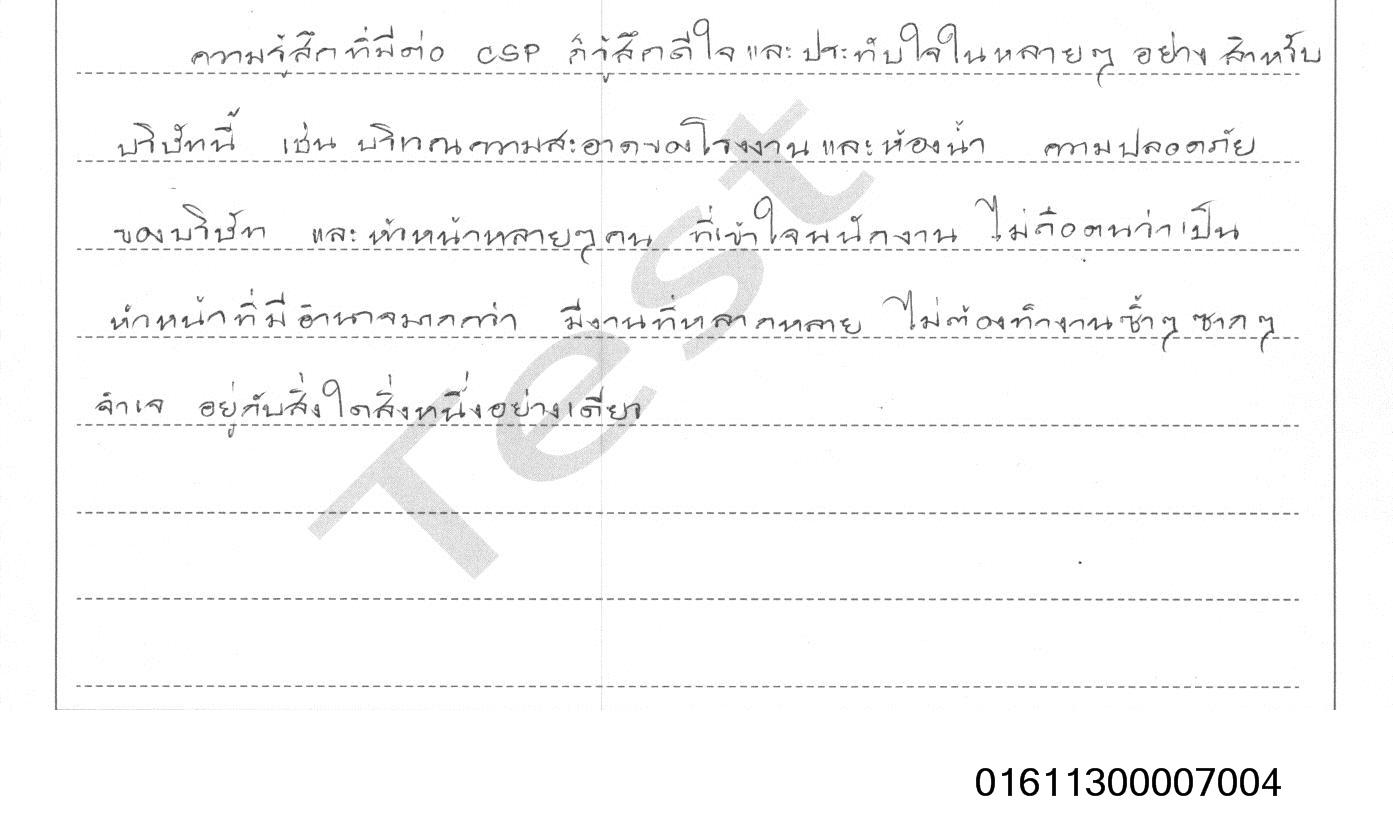 ความรู้สึกที่มีต่อ CSP ก็รู้สึกดีใจ และประทับใจในหลายๆ อย่าง สำหรับ
บริษัทนี้ เช่น บริเวณความสะอาดของโรงงาน และห้องน้ำ ความปลอดภัย
ของบริษัท และหัวหน้าหลายๆ คน ที่เข้าใจพนักงาน ไม่ถือตนว่าเป็น
หัวหน้าที่มีอำนาจมากกว่า มีงานที่หลากหลาย ไม่ต้องทำงานซ้ำๆ ซากๆ
จำเจ อยู่กับสิ่งใดสิ่งหนึ่งอย่างเดียว
Test
01611300007004